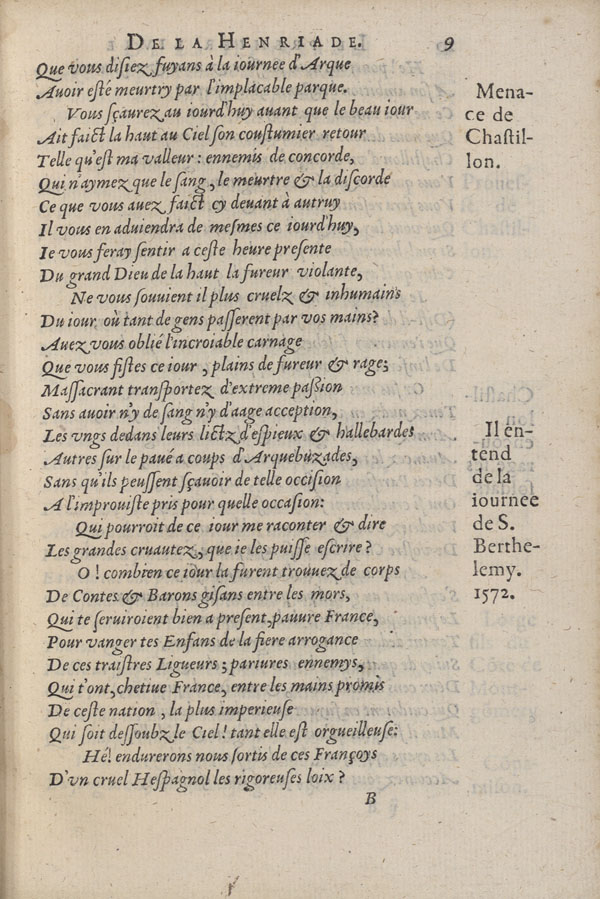 DE LA HENRIADE. 9
Que vous disiez fuyans à la iournee d'Arque
Auoir esté meurtry par l'implacable parque.
Vous sçaurez au iourd'huy auant que le beau iour
Ait faict la haut au Ciel son coustumier retour
Telle qu'est ma valleur : ennemis de concorde,
Qui n'aymez que le sang, le meurtre & la discorde
Ce que vous auez faict cy deuant à autruy
Il vous en aduiendra de mesmes ce iourd'huy,
Ie vous feray sentir a ceste heure presente
Du grand Dieu de la haut la fureur violante,
Ne vous souuient il plus cruelz & inhumains
Du iour où tant de gens passerent par vos mains?
Auez vous oblié l'incroiable carnage
Que vous fistes ce iour, plains de fureur & rage;
Massacrant transportez d'extreme passion
Sans auoir n'y de sang n'y d'aage acception,
Les vngs dedans leurs lictz d'espieux & hallebardes
Autres sur le paué a coups d'Arquebuzades,
Sans qu'ils peussent sçauoir de telle occision
A l'improuiste pris pour quelle occasion:
Qui pourroit de ce iour me raconter & dire
Les grandes cruautez, que ie les puisse escrire ?
O ! combien ce iour la furent trouuez de corps
De Contes & Barons gisans entre les mors,
Qui te seruiroient bien a present, pauure France,
Pour vanger tes Enfans de la fiere arrogance
De ces traistres Ligueurs ; pariures ennemys,
Qui t'ont, chetiue France, entre les mains promis
De ceste nation, la plus imperieuse
Qui soit dessoubz le Ciel! tant elle est orgueilleuse:
Hé! endurerons nous sortis de ces Françoys
D'vn cruel Hespagnol les rigoreuses loix ?
B
Mena-
ce de
Chastil-
lon.
Il en-
tend
de la
iournee
de S.
Berthe-
lemy.
1572.